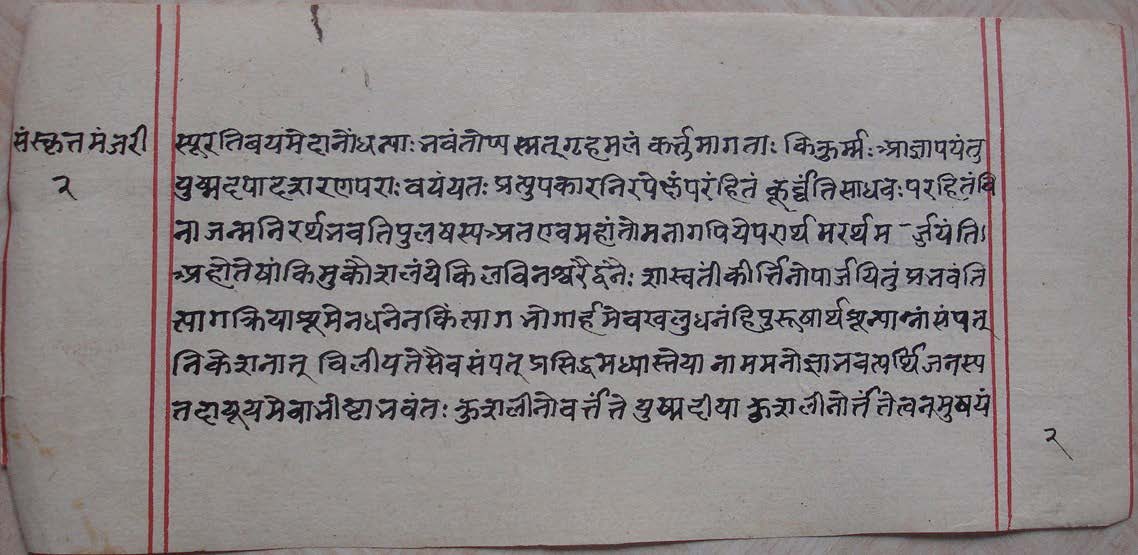 संस्कृतमंजरी
२
स्फूरतिवयमेदानोंधत्याः नवंतोप्पस्मत्गृहमलंकर्त्तुमागताः किकुर्म्मःआज्ञापयंतु
युष्मदपादशरणपराः वयंयतः प्रत्युपकारनिरपेक्षंपरंहितं कूर्वंतिसाधवःपरहितंवि
नाजन्मनिरर्थभवतिपुरुषस्पअतएवमहांतोमनागपियेपरार्थमरर्थमर्जयंति।
अहोतेषांकिमुकौशलंयेकिलविनश्वरैर्द्धनैः शास्वतीकीर्त्तिनोपार्जयितुंप्रभवंति
त्यागक्रियाशूमेनधनेनकिंत्यागभोगार्हमेवखलुधनंहिपुरूषार्थशून्यानांसंपत्
निकेशनात् विलीयतेसैवसंपत्प्रसिद्धमध्यास्तेयानाममनोज्ञाभवत्पर्थिजनस्प
तदायूयमेवाभीष्टाभवंतः कुशलीनोवर्त्तंते युष्मदीयाकुशलीनोर्त्तंतेत्वनमुषयं
२